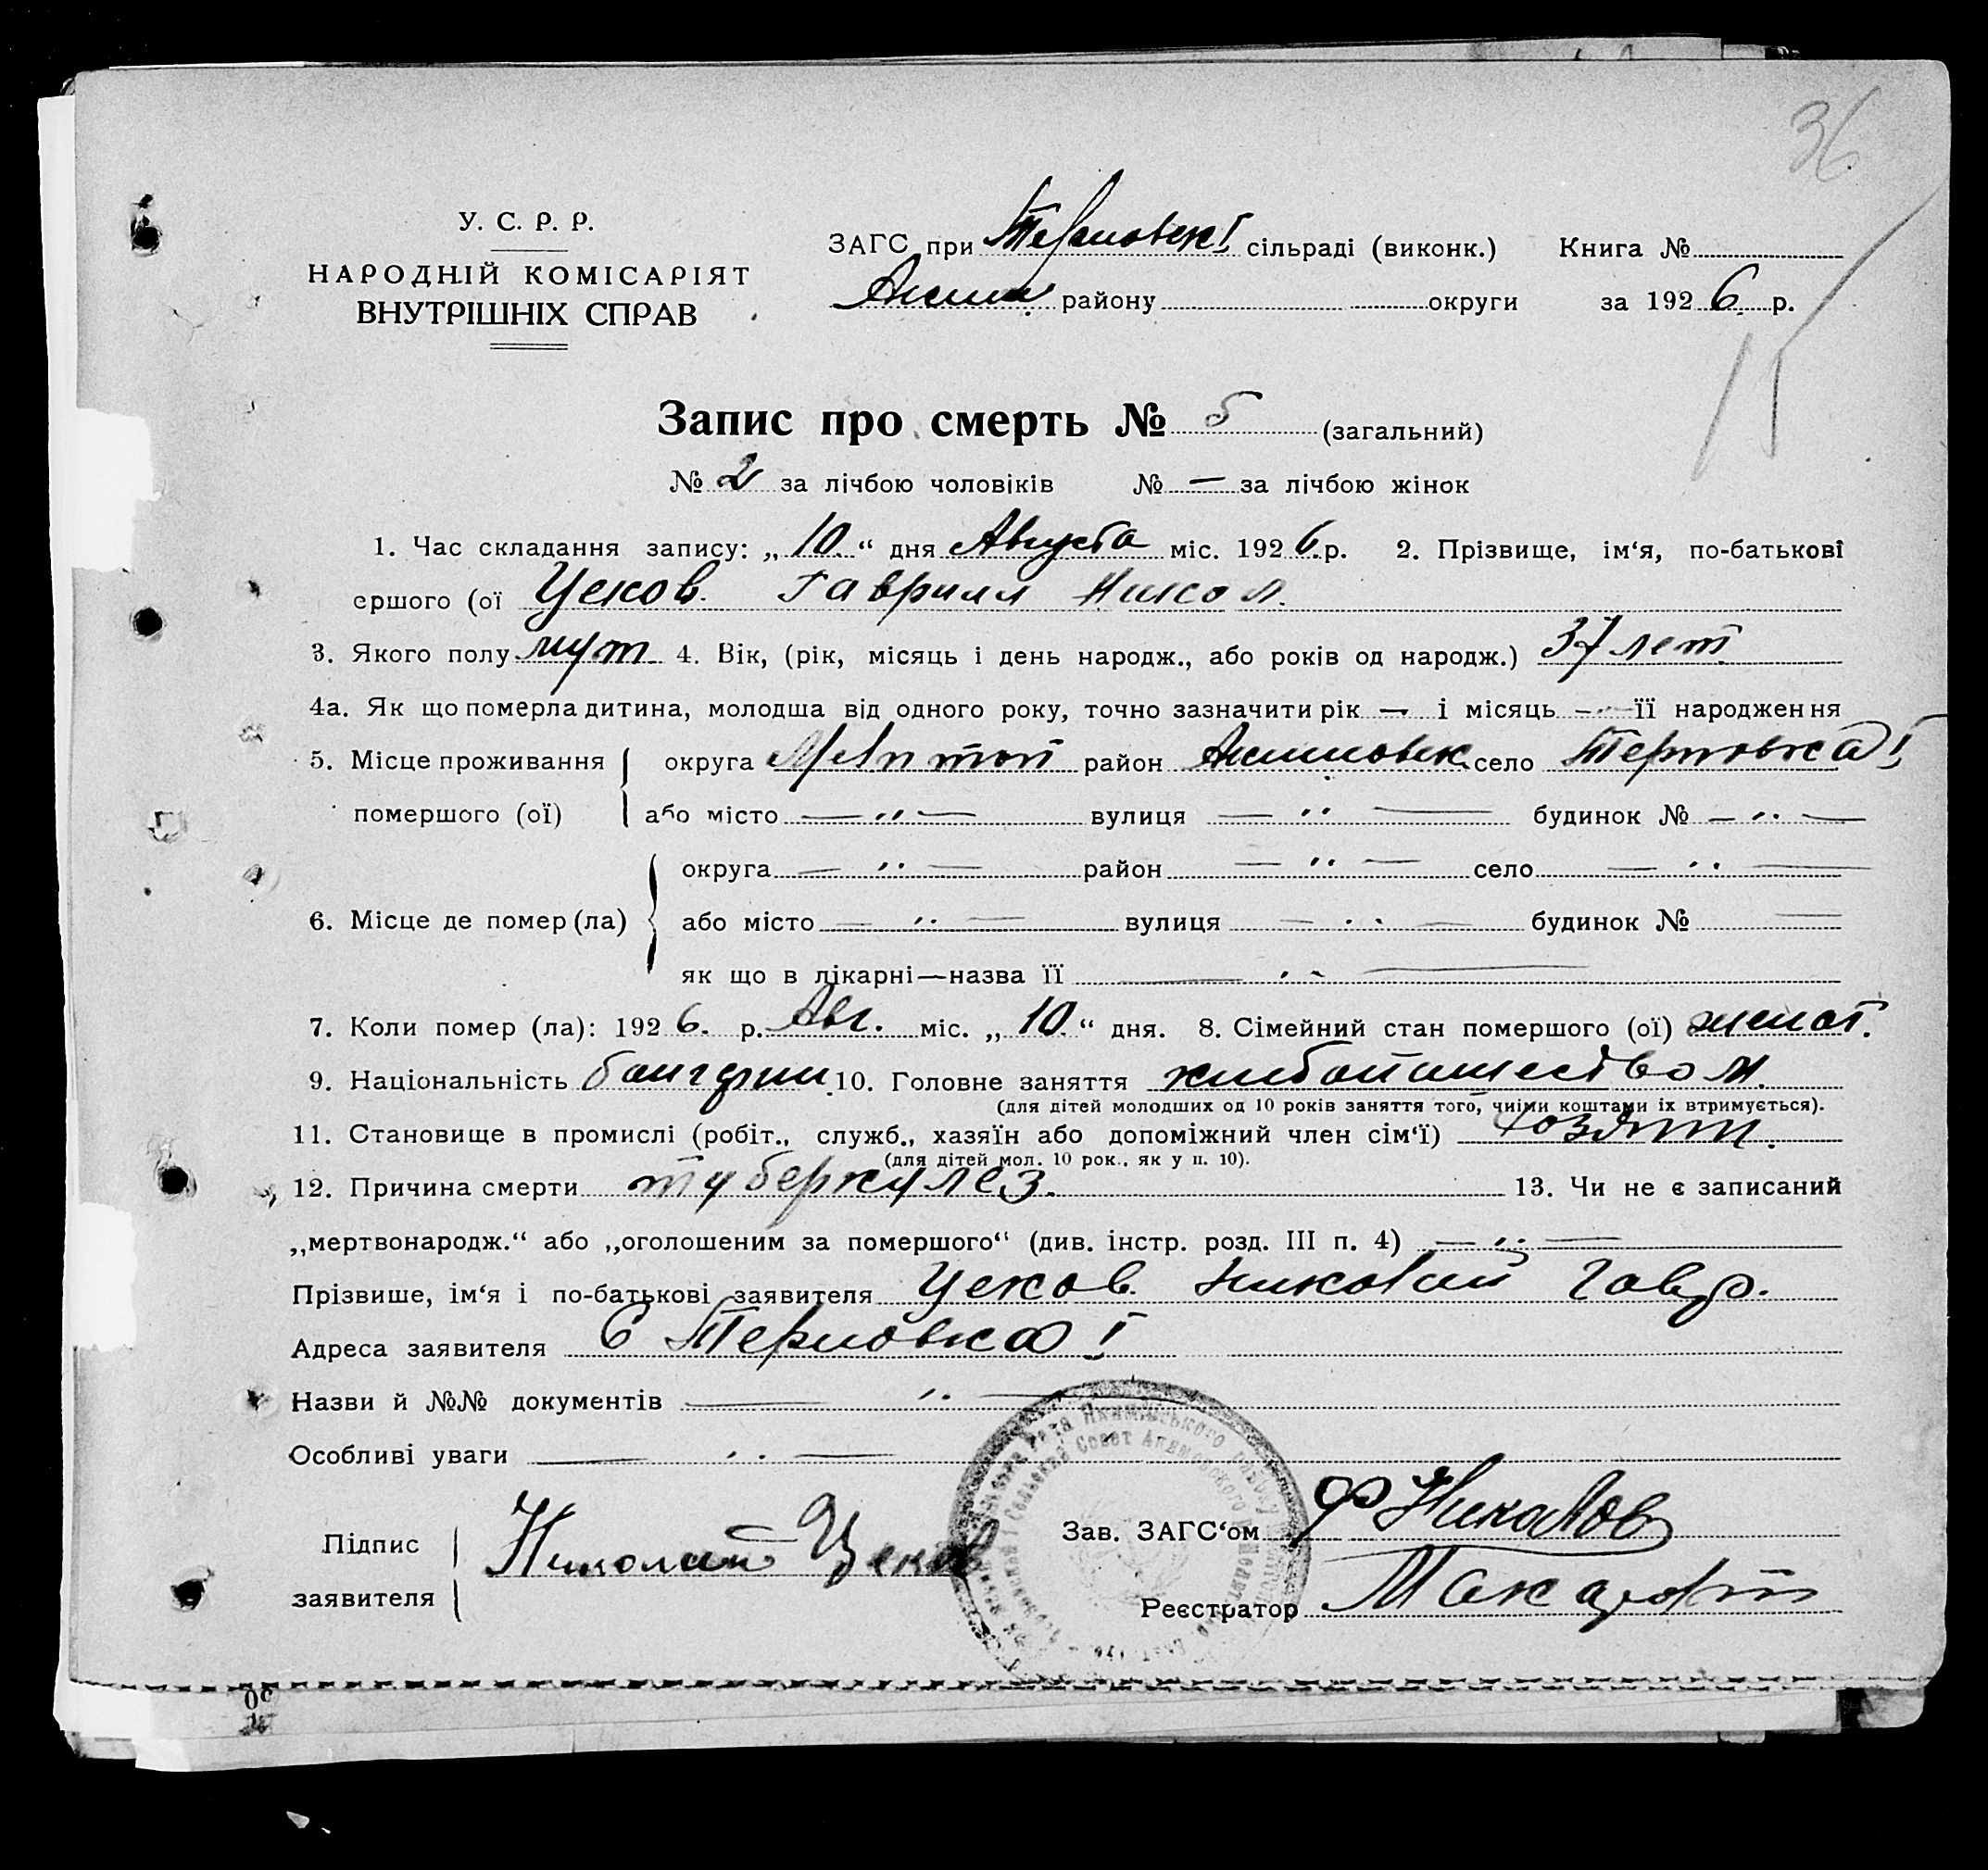 36
15
У. С. Р. Р.
НАРОДНІЙ КОМІСАРІЯТ
ВНУТРІШНІХ СПРАВ
ЗАГС при Терновск I сільраді (виконк.) Книга №
Аким району округи за 1926 р.
Запис про смерть № 5 (загальний)
№ 2 за лічбою чоловіків № — за лічбою жінок
1. Час складання запису: „10.“ дня Августа міс. 1926 р. 2. Прізвище, ім‘я, по-батькові
ершого (ої Цеков Гаврилл Никол.
3. Якого полу муж. 4. Вік, (рік, місяць і день народж., або років од народж.) 37 лет.
4а. Як що померла дитина, молодша від одного року, точно зазначити рік — і місяць — її народження
5. Місце проживання округа Мелитоп район Акимовск. село Терновка I
помершого (ої) або місто — „ — вулиця — „ — будинок № — „ —
округа — „ — район — „ — село — „ —
6. Місце де помер (ла) або місто — „ — вулиця — „ — будинок № —
як що в лікарні—назва її — „ —
7. Коли помер (ла): 1926. р. Авг. міс. „10.“ дня. 8. Сімейний стан помершого (ої) женат.
9. Національність болгарин. 10. Головне заняття хлебопашеством.
(для дітей молодших од 10 років заняття того, чиїми коштами іх втримується).
11. Становище в промислі (робіт., служб., хазяїн або допоміжний член сім‘ї) хозяин.
(для дітей мол. 10 рок., як у п. 10).
12. Причина смерти туберкулез. 13. Чи не є записаний
„мертвонародж.“ або „оголошеним за помершого“ (див. інстр. розд. III п. 4) — „ —
Прізвише, ім‘я і по-батькові заявителя Цеков Николай Гавр.
Адреса заявителя С Терновка I
Назви й №№ документів — „ —
Особливі уваги — „ —
Підпис
заявителя Николай Цеков
Зав. ЗАГС‘ом Ф Николов
Реєстратор